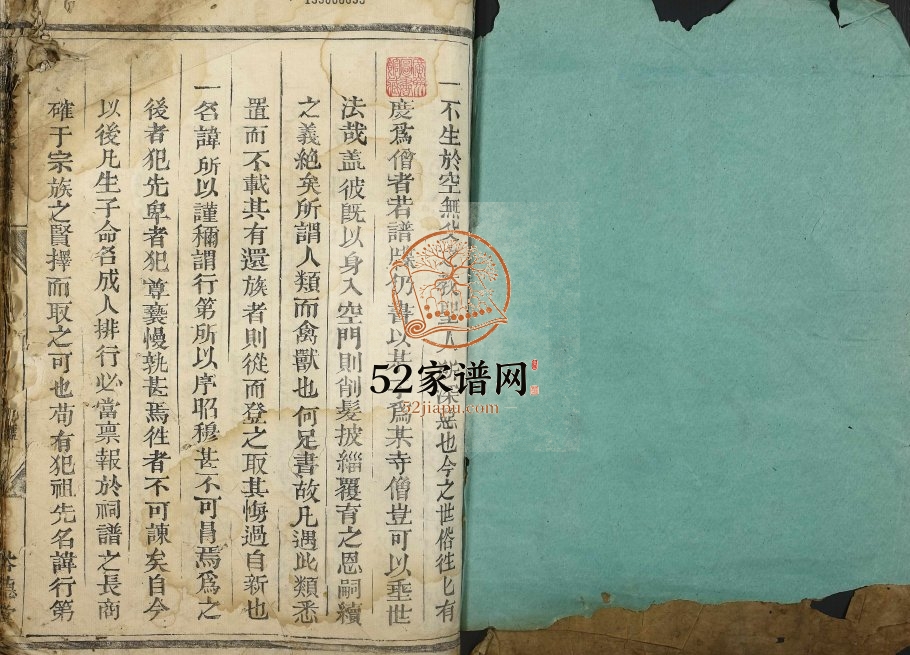 一不生於空無父聖人所深惡也今之世俗徃七有
度爲僧者若譜牒仍書以某子爲某寺僧豈可以垂世
法哉盖彼旣以身入空門則削髮披緇覆育之恩嗣續
之義絶矣所謂人類而禽獸也何足書故凡遇此類悉
置而不載其有還族者則從而登之取其悔過自新也
一名諱所以謹稱謂行第所以序昭穆甚不可冐焉爲之
後者犯先卑者犯尊褻慢孰甚焉徃者不可諫矣自今
以後凡生子命名成人排行必當禀報於祠譜之長商
確于宗族之賢擇而取之可也苟有犯祖先名諱行第
52家谱网
52jiapu.com